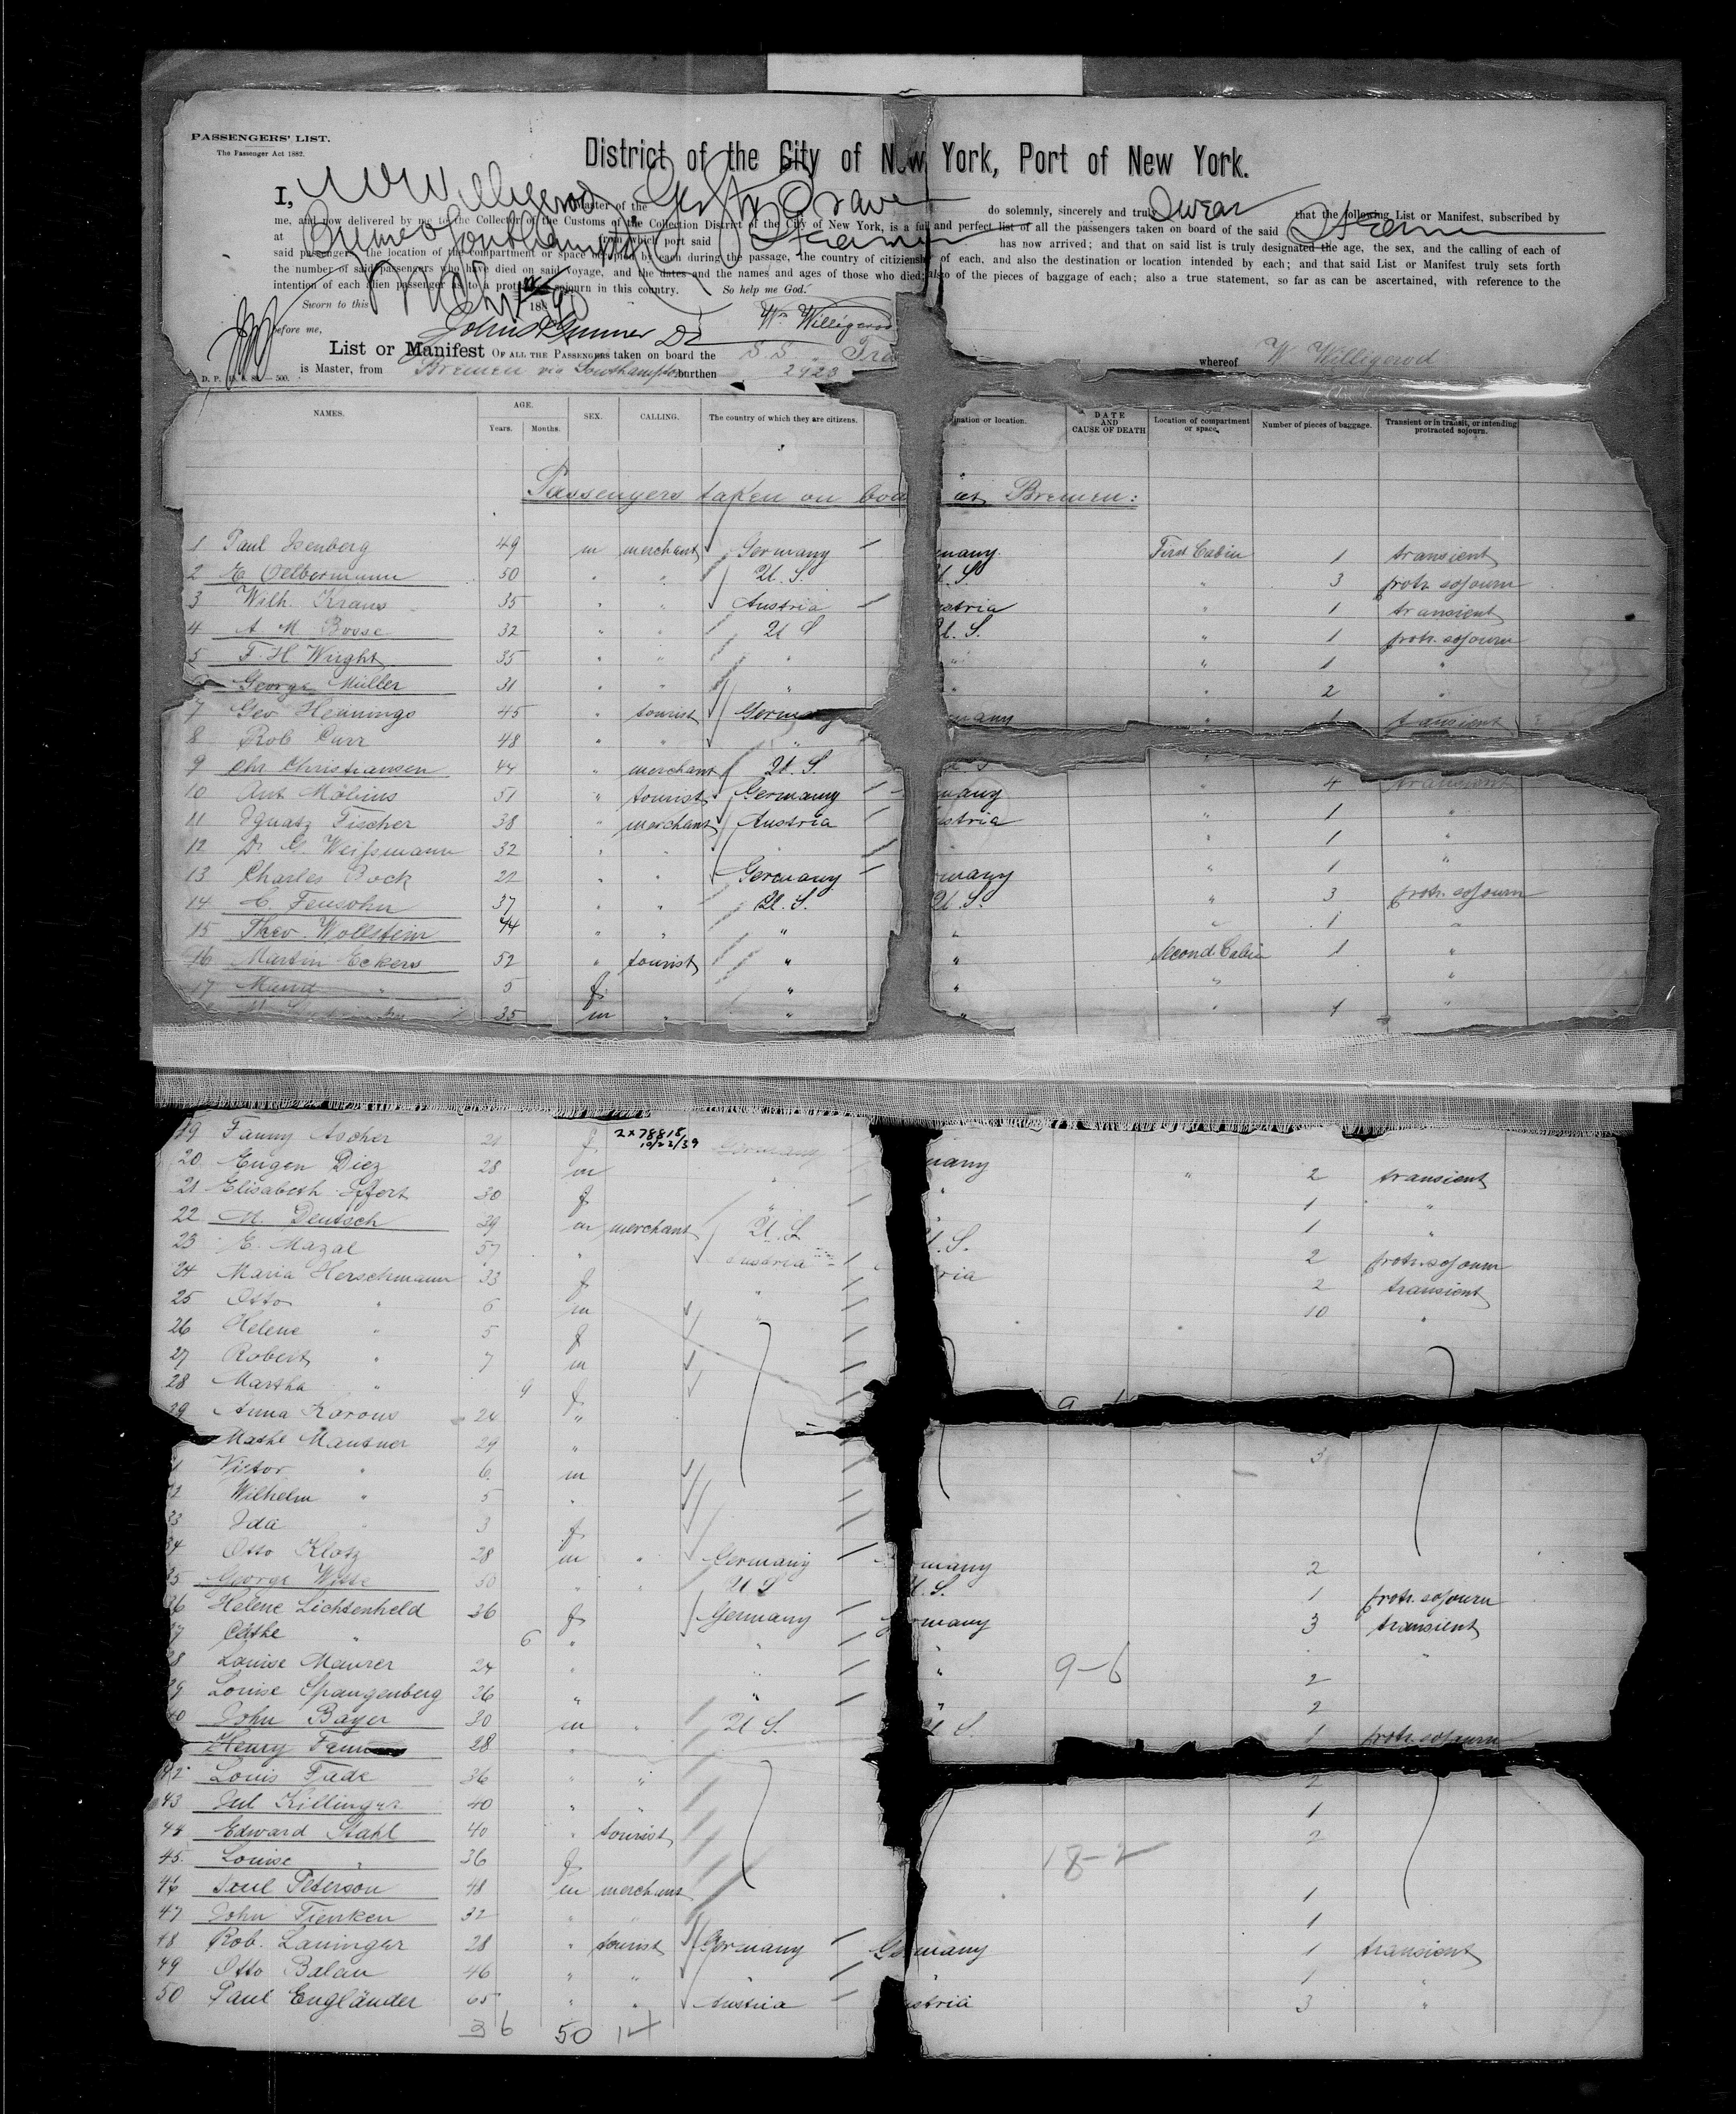 PASSENGERS' LIST.
The Passenger Act 1882.
District of the City of New York, Port of New York.
I, W Willigerod Master of the Gr Str Trave do solemnly, sincerely and truly swear that the following List or Manifest, subscribed by
me, and now delivered by me to the Collector of the Customs of the Collection District of the City of New York, is a full and perfect list of all the passengers taken on board of the said Steamer
at Bremen & Southampton from which port said Steamer has now arrived; and that on said list is truly designated the age, the sex, and the calling of each of
said passengers, the location of the compartment or space occupied by each during the passage, the country of citizenship of each, and also the destination or location intended by each; and that said List or Manifest truly sets forth
the number of said passengers who have died on said voyage, and the dates and the names and ages of those who died; also of the pieces of baggage of each; also a true statement, so far as can be ascertained, with reference to the
intention of each alien passenger as to a protracted sojourn in this country. So help me God.
Sworn to this 188
before me, Wm Willigerod
List or Manifest OF ALL THE PASSENGERS taken on board the S.S. Tra whereof W Willigerod
is Master, from Bremen via Southampton burthen 2423
NAMES. AGE. Years. Months. SEX. CALLING. The country of which they are citizens. ination or location. DATE AND CAUSE OF DEATH Location of compartment or space. Number of pieces of baggage. Transient or in transit, or intending protracted sojourn.
Passengers taken on boa at Bremen:
1 Paul Isenberg 49 m merchant Germany many First Cabin 1 transient
2 E. Oelbermann 50 " " U. S. U. S " 3 protr. sojourn
3 Wilh. Kraus 35 " " Austria stria " 1 transient
4 A M Bosse 32 " " U S U. S. " 1 protr. sojourn
5 F. H. Wright 35 " " " " " 1 "
George Müller 31 " " " " " 2 "
7 Geo Hennings 45 " tourist Germany many " 1 transient
8 Rob Curr 48 " " "
9 Chr Christiansen 44 " merchant U. S. U. S "
10 Ant Möbius 51 " tourist Germany many " 4 transient
11 Ignatz Fischer 38 " merchant Austria stria " 1 "
12 Dr. G. Weifsmann 32 " " " " " 1 "
13 Charles Bock 22 " " Germany rmany " 1 "
14 C. Fensohn 37 " " U. S. U. S. " 3 protr. sojourn
15 Theo. Wollstein 44 " " " " " 1 "
16 Martin Eckers 52 " tourist " " Second Cabin 1 "
17 Maud " 5 f " " " "
35 m " " " " 1 "
19 Fanny Ascher 21 f Germany many
2x78818 10/22/39
20 Eugen Diez 28 m " " " 2 transient
21 Elisabeth Effert 30 f " " 1 "
22 M. Deutsch 39 m merchant U. S U. S. 1 "
23 E. Mazal 57 " Austria ria 2 protr. sojourn
24 Maria Herschmann 33 f " 2 transient
25 Otto " 6 m " 10 "
26 Helene " 5 f
27 Robert " 7 m
28 Martha " 9 f
29 Anna Karous 24 "
Mathl Mautner 29 " 3
1 Victor " 6 m
2 Wilhelm " 5 "
33 Ida " 3 f
34 Otto Klotz 28 m " Germany many 2
35 George Witte 50 " " U S U. S. 1 protr. sojourn
36 Helene Lichtenheld 36 f Germany Germany 3 transient
7 Cäthe " 6 " " " " "
8 Louise Maurer 24 " " " 9-6 2
9 Louise Spangenberg 26 " " " 2
40 John Bayer 30 m " U S. U S. 1 protr. sojourn
Henry 28 "
42 Louis Fade 36 " " 2
43 Jul Killinger 40 " " 1
44 Edward Stahl 40 " tourist 2
45. Louise " 36 f 18-2
46 Paul Peterson 48 m merchant 1
47 John Tienken 32 " " 1
48 Rob. Laninger 28 " tourist Germany Germany 1 transient
49 Otto Balan 46 " " " " 1 "
50 Paul Engländer 65 " " Austria stria 3 "
36 50 14